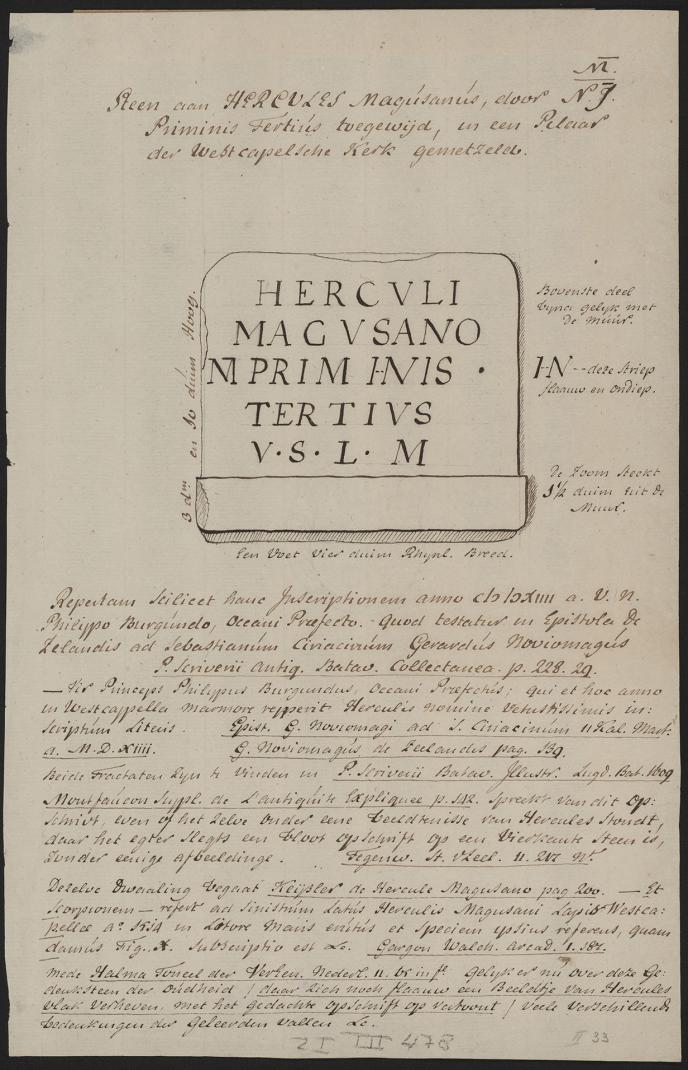 M.
Steen aan HERCVLES Magusanus, door N. J.
Priminis Tertius toegewijd, in een Pilaar
der Westcapelsche Kerk gemetzeld.
HERCVLI
MAGVSANO
M PRIMINIVS ·
TERTIVS
V · S · L · M
3 dm en 10 duim Hoog.
Bovenste deel
byna gelyk met
de Muur.
HN -- deze Striep
flaauw en ondiep.
de Zoom Steekt
1½ duim uit de
Muur.
Een Voet Vier duim Rhynl. Breed.
Repertam Scilicet hanc Inscriptionem anno cIɔ Iɔ XIIII a. V. n.
Philippo Burgundo, Oceani Præfecto. - Quod testatur in Epistola de
Zelandis ad Sebastianum Ciriacinum Gerardus Noviomagus
P. Scriverii Antiq. Batav. Collectanea. p. 228. 29.
— Vir Princeps Philippus Burgundus, Oceani Præfectus; qui et hoc anno
in Westcappella marmore repperit Herculis nomine Vetustissimis in:
scriptum Literis. Epist. G. Noviomagi ad S. Ciriacinum 11 Kal. Mart.
a. M.D.XIIII. G. Noviomagus de Zeelandes pag. 139.
Beide Tractaten Zyn te vinden in P. Scriverii Batav. Illustr. Lugd. Bat. 1609
Montfaucon Suppl. de L'antiquite Expliquee p. 142. Spreekt van dit Op:
schrivt, even of het zelve onder eene Beeldtenisse van Hercules Stondt,
daar het egter Slegts een bloot opschrift op een Vierkante Steen is,
zonder eenige afbeeldinge. Tegenw. St. v Zeel. 11. 217 Nt.
Dezelve Dwaaling begaat Keijsler de Hercule Magusano pag 200. — Et
Scorpionem — refert ad Sinistrum Latus Herculis Magusani Lapis Westca:
pellæ ao. 1514 in Litore Maris erutus et Speciem ipsius referens, quam
damus Fig. X. Subscriptio est &c. Gargon Walch. Arcad. 1. 187.
mede Halma Toneel der Veréen. Nederl. 11. in f. Gelyk er nu over deze Ge:
denksteen der Oudheid / daar zich noch flaauw een Beeldtje van Hercules
vlak Verheven, met het gedachte opschrift op vertoont / veele Verschillende
bedenkingen der Geleerden vallen &c.
ZI III 478
II 33